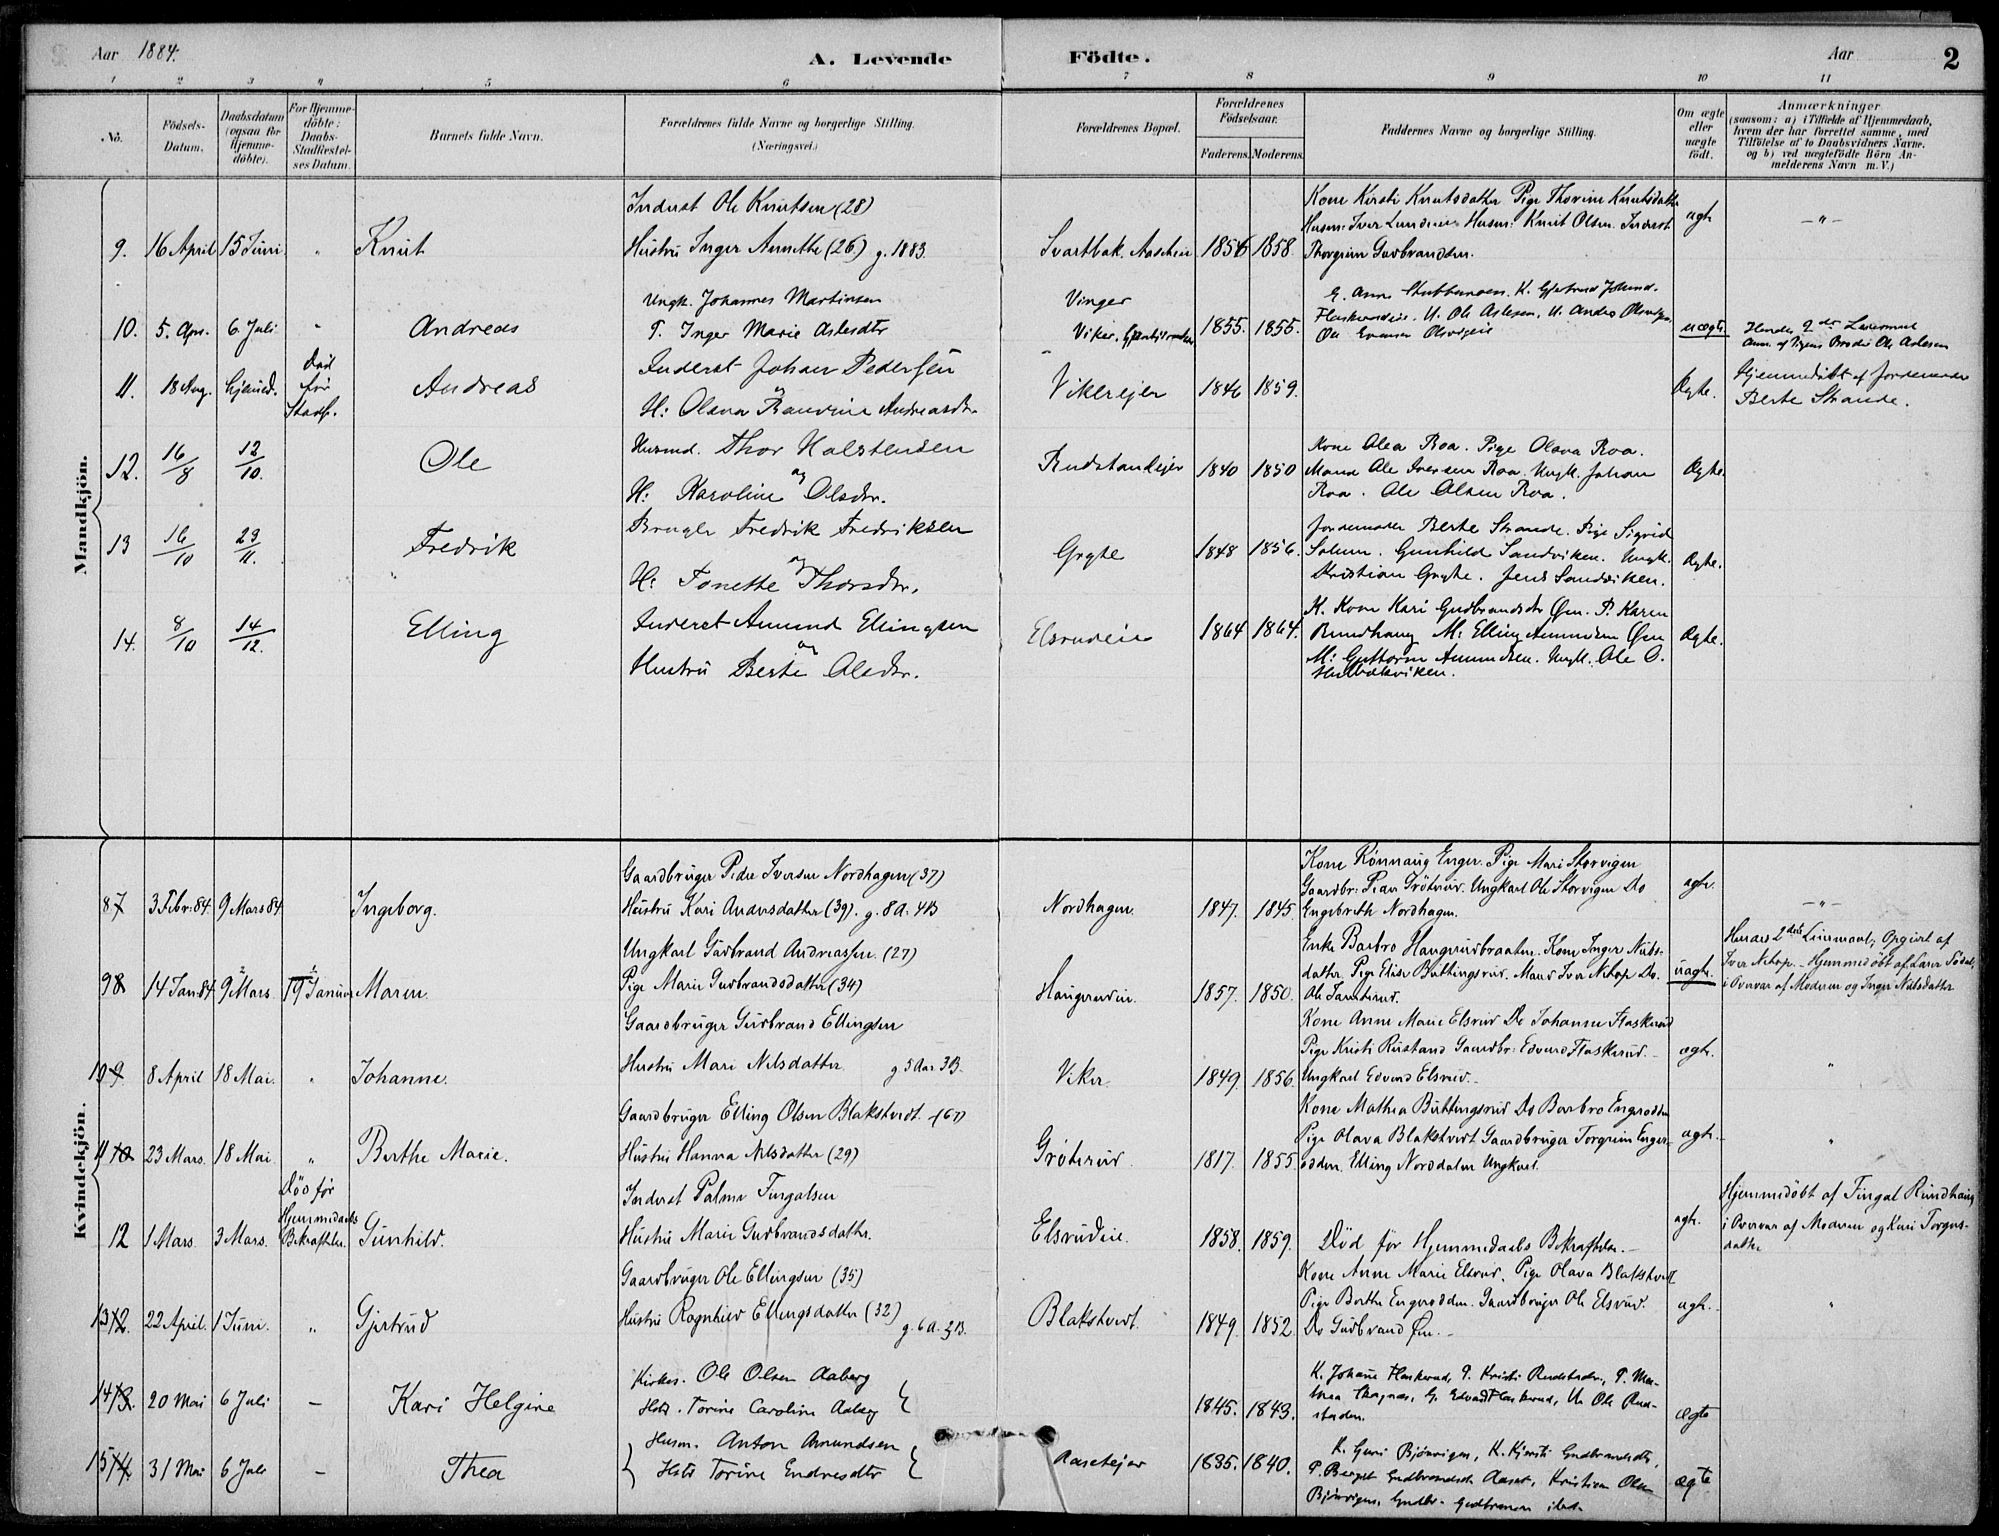 Aar 1884.
A. Levende Födte.
Aar
2
1 2 3 4 5 6 7 8 9 10 11
No.
Födsels-
Datum.
Daabsdatum
(ogsaa for
Hjemme-
döbte).
For Hjemme-
döbte:
Daabs-
Stadfestel-
ses Datum.
Barnets fulde Navn.
Forældrenes fulde Navne og borgerlige Stilling.
(Næringsvei.)
Forældrenes Bopæl.
Forældrenes
Födselsaar.
Faderens. Moderens.
Faddernes Navne og borgerlige Stilling.
Om ægte
eller
uægte
födt.
Anmærkninger
(saasom: a) i Tilfælde af Hjemmedaab,
hvem der har forrettet samme, med
Tilföielse af to Daabsvidners Navne.
og b) ved uægtefödte Börn An-
melderens Navn m.V.)
Mandkjön.
Inderst Ole Knutsen (28)
9. 16 April 15 Juni. " Knut
Hustru Inger Annette (26) g. 1883.
Svartbak. Aaseheie 1856 1858.
Kone Kirsti Knutsdatter Pige Thorine Knutsdatter
Husm: Iver Lundeie Husm: Knut Olsen Inderst
Thorgrim Gudbrandsen.
ægte
-"-
10. 5. Apr. 6 Juli " Andreas
Ungk. Johannes Martinsen
P. Inger Marie Aslesdtr
Vinger
Viker. 1855. 1855.
Flaskerudeie. U. Ole Aslesen, U. Andr. Olsvigen
Ole Evensen Olsvigeie
uægte.
Hendes 2det Leiermaal
Anm. af Pigens Broder Ole Aslesen
11. 18 Aug. Hjemmed. Død før Stadf. Andreas
Inderst Johan Pedersen
og
H: Olava Andreasdr.
Vikerejer 1846 1859.
Ægte.
Hjemmedöbt af Jordemoder
Berte Strande.
12. 16/8 12/10. Ole
Husmd. Thor Halstensen
og
H: Karoline Olsdr.
Rudstandejer 1840 1850
Kone Olea Roa. Pige Olava Roa.
Mand Ole Iversen Roa. Ungk. Johan
Roa. Ole Olsen Roa.
Ægte.
13 16/10 23/11. Fredrik
Brugler Fredrik Fredriksen
og
H: Tonette Thorsdr.
Gryte 1848 1856.
Jordemoder Berte Strande. Pige Sigrid
Solum. Gunhild Sandviken. Ungk.
Kristian Gryte. Jens Sandviken.
Ægte.
14. 8/10 14/12. Elling
Inderst Amund Ellingsen
og
Hustru Berte Olsdr.
Elsrudeie 1864 1864.
K. Kone Kari Gudbrandsdr Øen. P. Karen
Rundhaug M: Elling Amundsen Øen
M: Guttorm Amundsen. Ungk. Ole O.
Ægte.
Kvindekjön.
Gaardbruger Peder Iversen Nordhagen (37)
8 7 3 Febr: 84. 9 Mars 84 Ingeborg.
Hustru Kari Andersdatter (39). g. 8 A. 4B
Nordhagen. 1847. 1845.
Kone Rønnaug Enger. Pige Mari Storvigen
Gaardbr: Peder Grøterud. Ungkarl Ole Storvigen Do
Engebreth Nordhagen.
ægte.
-"-
Ungkarl Gudbrand Andreassen. (27)
9 8 14 Jan: 84. 9 Mars. 19 Januar Maren.
Pige Marie Gudbrandsdatter (34)
Haugerudeie. 1857. 1850.
Enke Barbro Haugerudbraaten. Kone Inger Nils-
datter Pige Elise Buttingsrud. Mand Iver Do.
Ole
uægte.
Hendes 2det Leiermaal; Opgivet af
Iver . Hjemmedøbt af
i Overvær af Moderen og Inger Nilsdatter
Gaardbruger Gudbrand Ellingsen
10 9. 8 April 18 Mai. " Johanne.
Hustru Mari Nilsdatter. g 5 Aar. 3B.
Viker. 1849. 1856.
Kone Anne Marie Elsrud Do Johanne Flaskerud
Pige Kristi Rustand Gaardbr: Edvard Flaskerud.-
Ungkarl Edvard Elsrud.-
ægte.
"
Gaardbruger Elling Olsen Blakstvedt. (67)
11 10 23 Mars. 18 Mai " Berthe Marie.
Hustru Hanna Nilsdatter (29)
Grøterud. 1817. 1855.
Kone Mathea Buttingsrud Do Barbro Engerodden
Pige Olava Blakstvedt Gaardbruger Torgrim Enger-
odden. Elling Norddalen Ungkarl.
ægte.
"
Død før
Hjemmedaabs
Bekræftelse.
Inderst Palme Fingalsen
12 1 Mars. 3 Mars. Gunhild.
Hustru Marie Gudbrandsdatter.
Elsrudeie. 1858. 1859.
Død før Hjemmedaabs Bekræftelse.-
ægte.
Hjemmedøbt af Fingal Rundhaug
i Overvær af Moderen og Kari Torgers-
datter
Gaardbruger Ole Ellingsen (35)
13 12. 22 April. 1 Juni. " Gjertrud
Hustru Ragnhild Ellingsdatter (32)
g. 6 A. 3 B.
Blakstvedt. 1849. 1852.
Kone Anne Marie Elsrud. Pige Olava Blakstvedt
Pige Berthe Engerodden. Gaardbruger Ole Elsrud.
Do Gudbrand Øen.-
ægte.
"
14 13. 20 Mai 6 Juli - Kari Helgine
Kirkes. Ole Olsen Aaberg
Hstr. Torine Caroline Aaberg
1845. 1843.
K. Johane Flaskerud, P. Kristi Rudstaden, P. Ma-
thea , G. Edvard Flaskerud, U. Ole Rud-
staden.
ægte
15 14. 31 Mai 6 Juli - Thea
Husm. Anton Amundsen
Hstr Torine Endresdtr
Aasetejer 1835. 1840.
K. Guri Bjönvigen, K. Kjersti Gudbrandsdtr,
P. Berget Gudbrandsdr Aaset, Kristian Olsen
Bjönvigen, Gudbr. Gudbransen ibd.
ægte